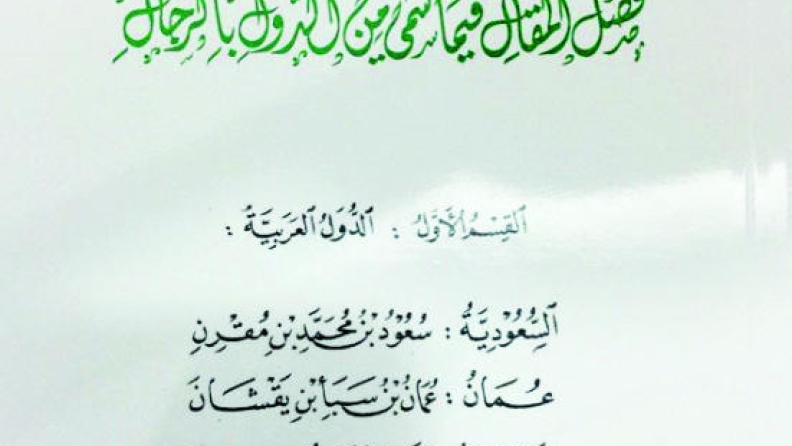 فَصْلُ المَقَالِ فِيمَا سُمِّيَ مِنَ الدُّوَلِ بِالرِّجَالِ
القِسْمُ الأَوَّلُ : الدُّوَلُ العَرَبِيَّةُ :
السُّعُودِيَّةُ : سُعُوْدُ بْنُ مُحَمَّدِ بْنِ مُقْرِنِ
عُمَانُ : عُمَانُ بْنُ سَبَأ بْنِ يَقْشَانَ